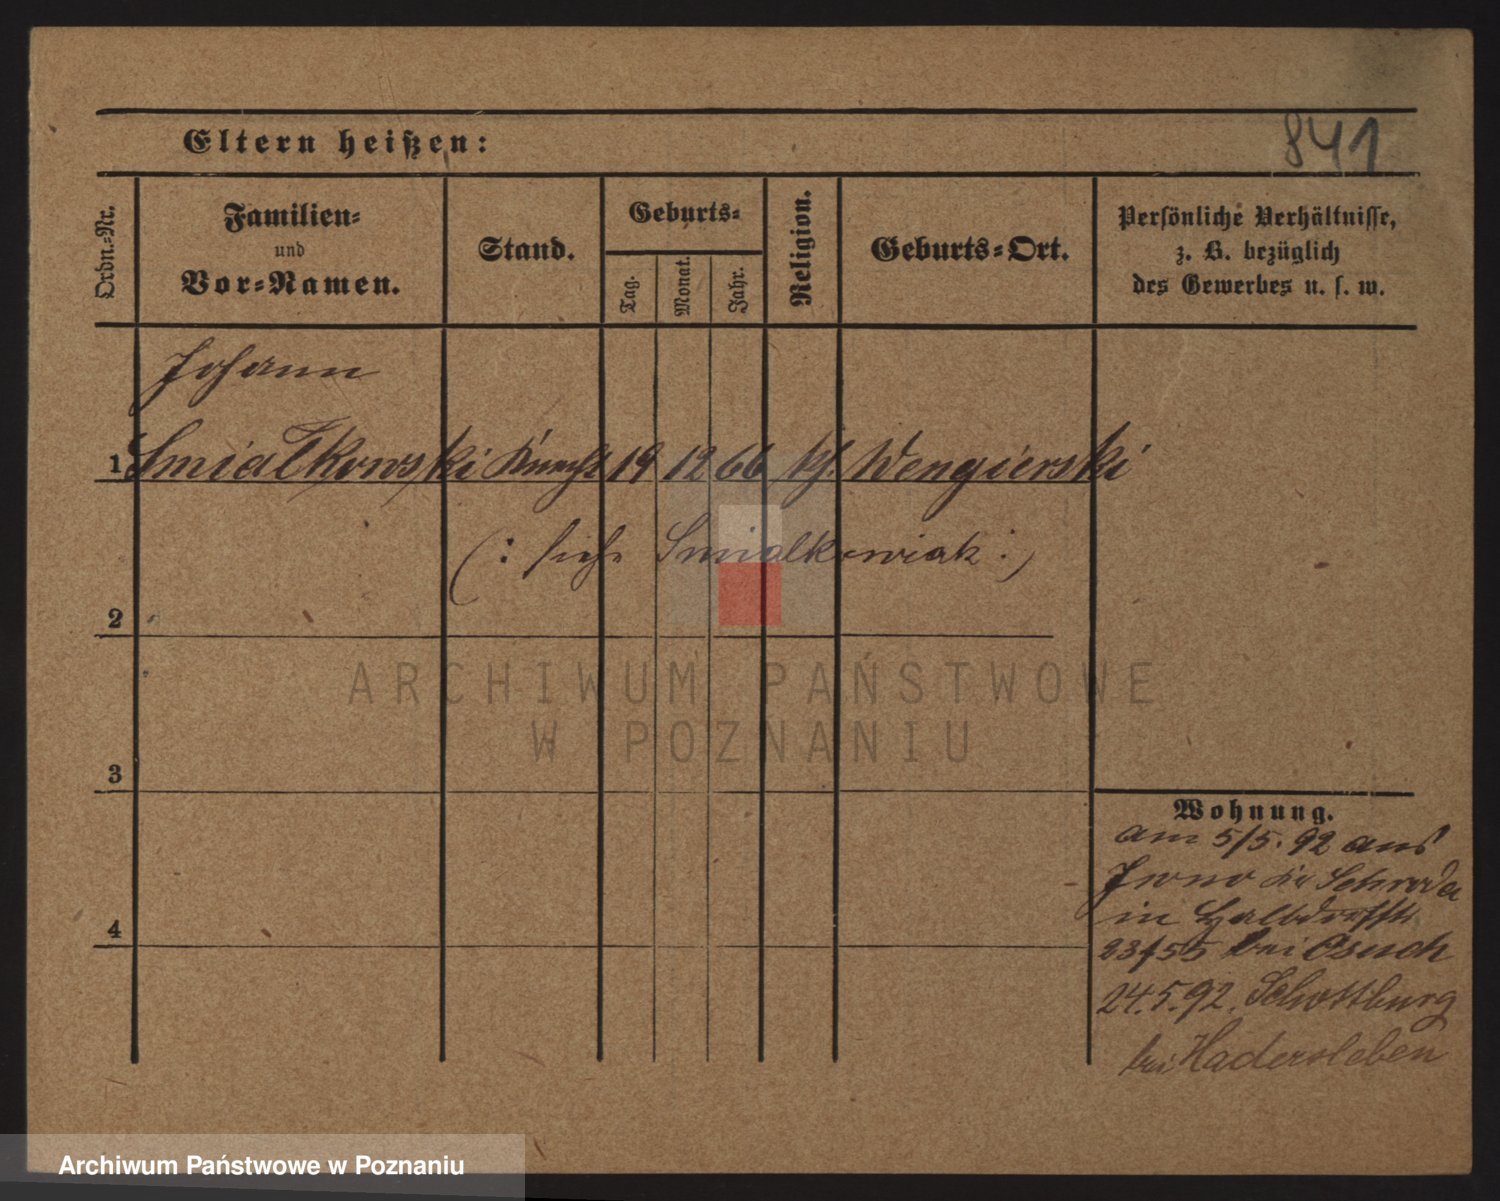 Eltern heißen:
841
Ordn.-Nr.
Familien-
und
Vor-Namen.
Stand.
Geburts-
Tag.
Monat.
Jahr.
Religion.
Geburts-Ort.
Persönliche Verhältnisse,
z. B. bezüglich
des Gewerbes u. s. w.
Johann
1 Smiałkowski Knecht 19 12 66 kf. Wengierski
(: siehe Smialkowiak :)
2
3
4
Wohnung.
am 5/5. 92 aus
Schroda
in Halbdorfstr
23/55 bei Osuch
24.5.92. Schottburg
bei Hadersleben
ARCHIWUM PAŃSTWOWE
W POZNANIU
Archiwum Państwowe w Poznaniu